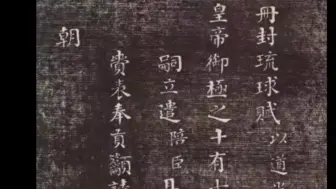 冊封琉球賦以道
皇帝御極之十有
嗣立遣陪臣
賫表奉貢籲
朝